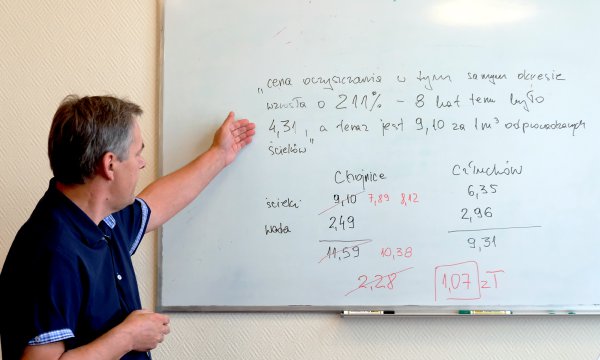 „cena oczyszczania w tym samym okresie
wzrosła o 211% - 8 lat temu było
4,31, a teraz jest 9,10 za 1 m³ odprowadzanych
ścieków"
Chojnice Człuchów
ścieki 9,10 7,89 8,12 6,35
woda 2,49 2,96
11,59 10,38 9,31
2,28 1,07 zł